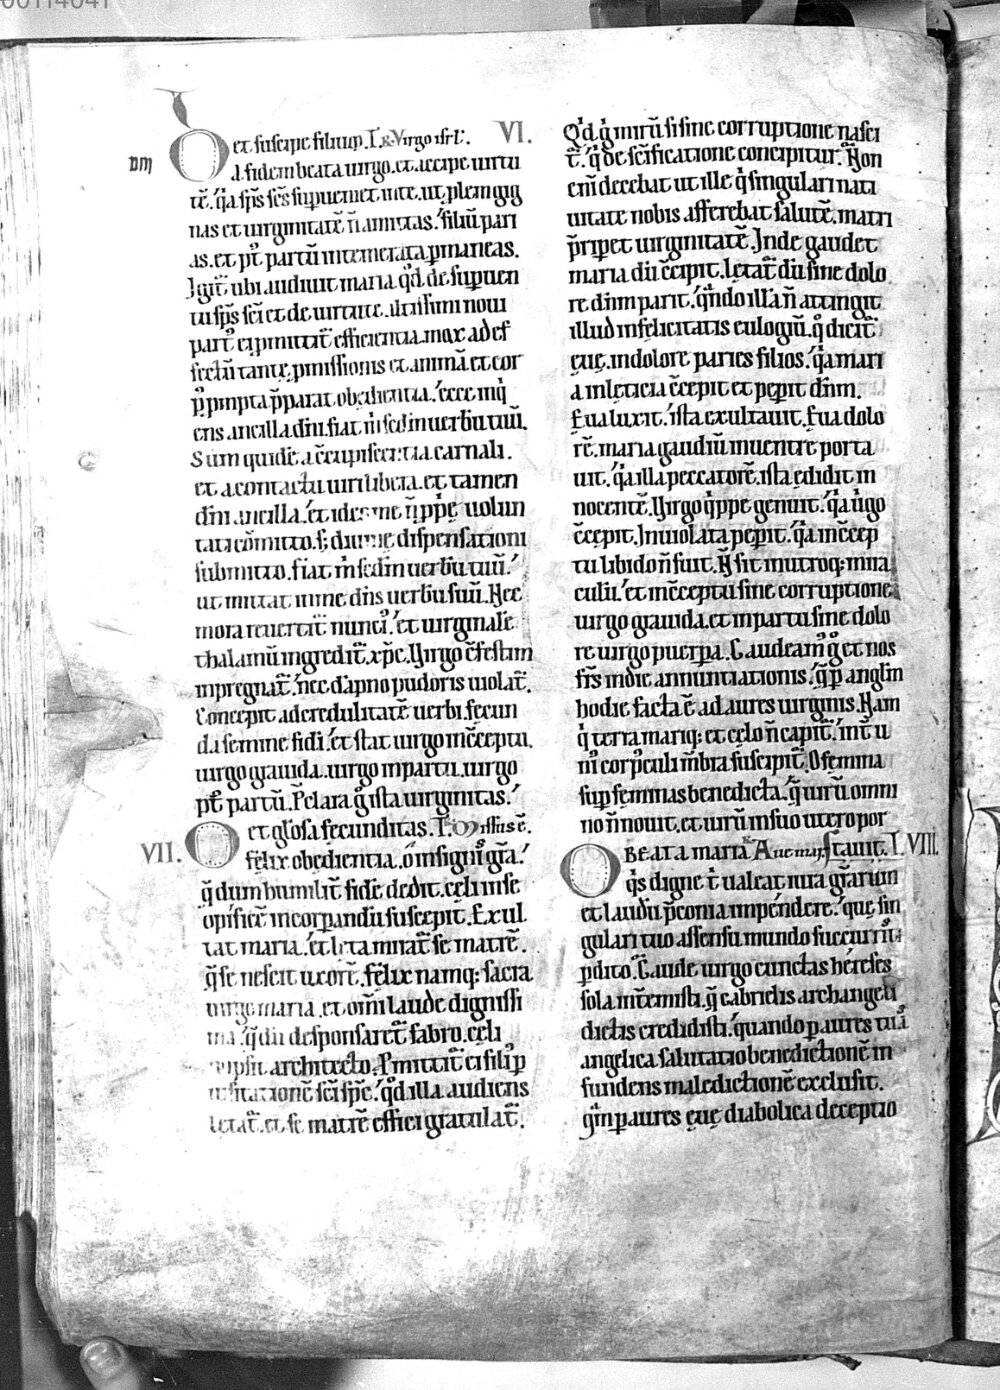 00114041
et suscipe filium. L&. Virgo isrł. VI.
D̄M
a fidem beata uirgo. et accipe uirtu
tē. q̇a sp̄s sc̄s supueniet in te. ut plenigig
nas et uirginitatē n̄ amittas. filiū pari
as. et pꝰt partū intemerata pmaneas.
Igit̄ ubi audiuit maria qd̄ de supuen
tu sp̄s sc̄i et de uirtute altissimi noui
part᷒ ei pmittit᷒ efficientia. mox ad ef
fectū tantę pmissionis et animā et cor
pꝰ pmpta p̄parat obędientia. ecce inq̇
ens ancilla dn̄i. fiat m̄ scd̄m uerbū tuū.
Sum quidē a ɔcupiscentia carnali.
et a contactu uiri libera. et tamen
dn̄i ancilla. et
uolun
tati cōmitto. s; diuinę dispensationi
submitto. fiat m̄ scd̄m uerbū tuū.
ut mittat in me dn̄s uerbū suū. Nec
mora reuertit᷒ nunciꝰ. et uirginale
thalamū ingredit᷒ xp̄c. Virgo cęlestim
inpregnat᷒. nec dāpno pudoris uiolat᷒.
Concepit ad credulitatē uerbi fecun
da semine fidi. et stat uirgo inɔceptu.
uirgo grauida. uirgo in partu. uirgo
pꝰt partū. P̄clara g̊ ista uirginitas.
et gl̄osa fecunditas. L̄. Missus ē.
VII. O felix obędientia. o insignis gr̄a.
q̄ dum humilit᷒ fidē dedit. cęli in se
opificē incorporandū suscepit. Exul
tat maria. et lęta mirat᷒ se matrē.
q̄ se nescit uxorē. Felix namq; sacra
uirgo maria. et om̄i laude digniſſi
ma. q̇ dū desponsaret᷒ fabro. cęli
nupsit architecto. Pmittit᷒ ei filiꝰ p
uisitationē sc̄i sp̄c. qd̄ illa audiens
lętat᷒. et se matrē effici gratulat᷒.
Qd̄ g̊ mirū si sine corruptione nasci
t᷒. q̇ de sc̄ificatione concipitur. Non
eni᷒ decebat ut ille q̇ singulari nati
uitate nobis afferebat salutē. matri
p̄riperet uirginitatē. Inde gaudet
maria dū ɔcipit. lętat᷒ dū sine dolo
re dn̄m parit. q̄ndo illā n̄ attingit
illud infelicitatis eulogiū. qd̊ dicit᷒
ęuę. in dolore paries filios. q̇a mari
a in lęticia ɔcepit et pepit dn̄m.
Eua luxit. ista exultauit. Eua dolo
rē. maria gaudiū in uentre porta
uit. q̇a illa peccatorē. ista ędidit in
nocentē. Virgo q̇ppe genuit. q̇a uirgo
ɔcepit. Inuiolata pepit. q̇a inɔcep
tu libido n̄ fuit. N̄ sit in utroq; mira
culū. et inɔceptu sine corruptione
uirgo grauida. et in partu sine dolo
re uirgo puerpa. Gaudeamꝰ g̊ et nos
fr̄s in die annuntiationis. q̄ p anglm̄
hodie facta ē ad aures uirginis. Nam
q̇ terra mariq; et cęlo n̄ capit᷒. int᷒ u
ni᷒ corpculi mb̄ra suscipit᷒. O femina
sup feminas benedicta. q̄ uirū omni
no n̄ nouit. et uirū in suo utero por
BEATA MARIA Aue mar. stauit. L. VIII.
q̇s digne t᷒ ualeat iura gr̄arum
et laudū p̄conia impendere. que sin
gulari tuo assensu mundo succurristi
pdito. Gaude uirgo cunctas hereses
sola int̄emisti. q̄ gabrielis archangeli
dictis credidisti. quando p aures tua
angelica salutatio benedictionē in
fundens maledictionē exclusit.
qm̄ p aures ęuę diabolica deceptio